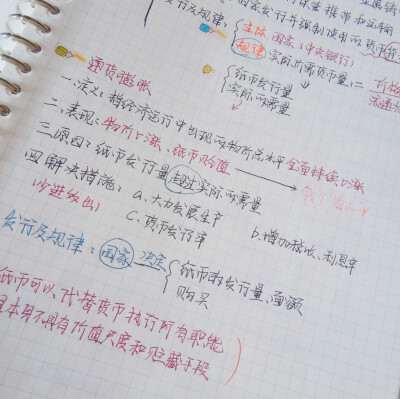 国家发行并强制使用的货币符号
发行及规律 { 主体 国家(中央银行)
规律 实际所需货币量 =
通货膨胀 { 纸币发行量
实际所需量
一.定义:指经济运行中出现的物价总水平全面持续上涨
二.表现:物价上涨,纸币贬值
三.原因:纸币发行量超过实际所需量
四.解决措施: a.大力发展生产 b.增加税收、利息率
(少进多出) c.货币发行率
发行及规律: 国家 决定 { 纸币的发行量、面额
购买
纸币可以代替货币执行所有职能
本身不具有价值尺度和贮藏手段